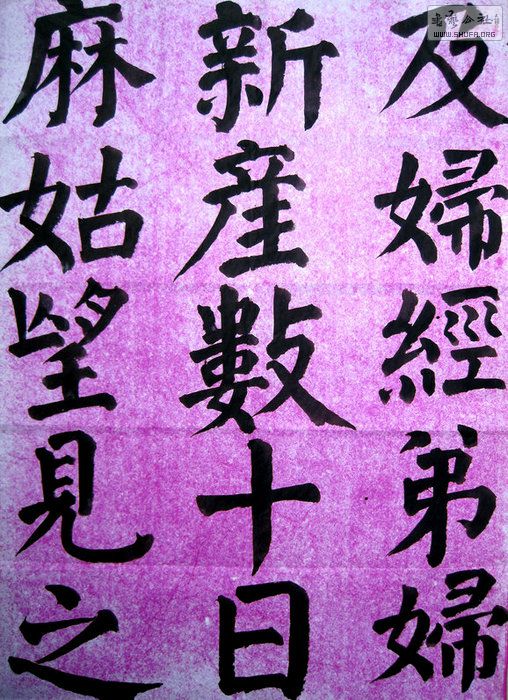 及婦經弟婦
新産數十日
麻姑望見之
書藝公社
WWW.SHUFA.ORG